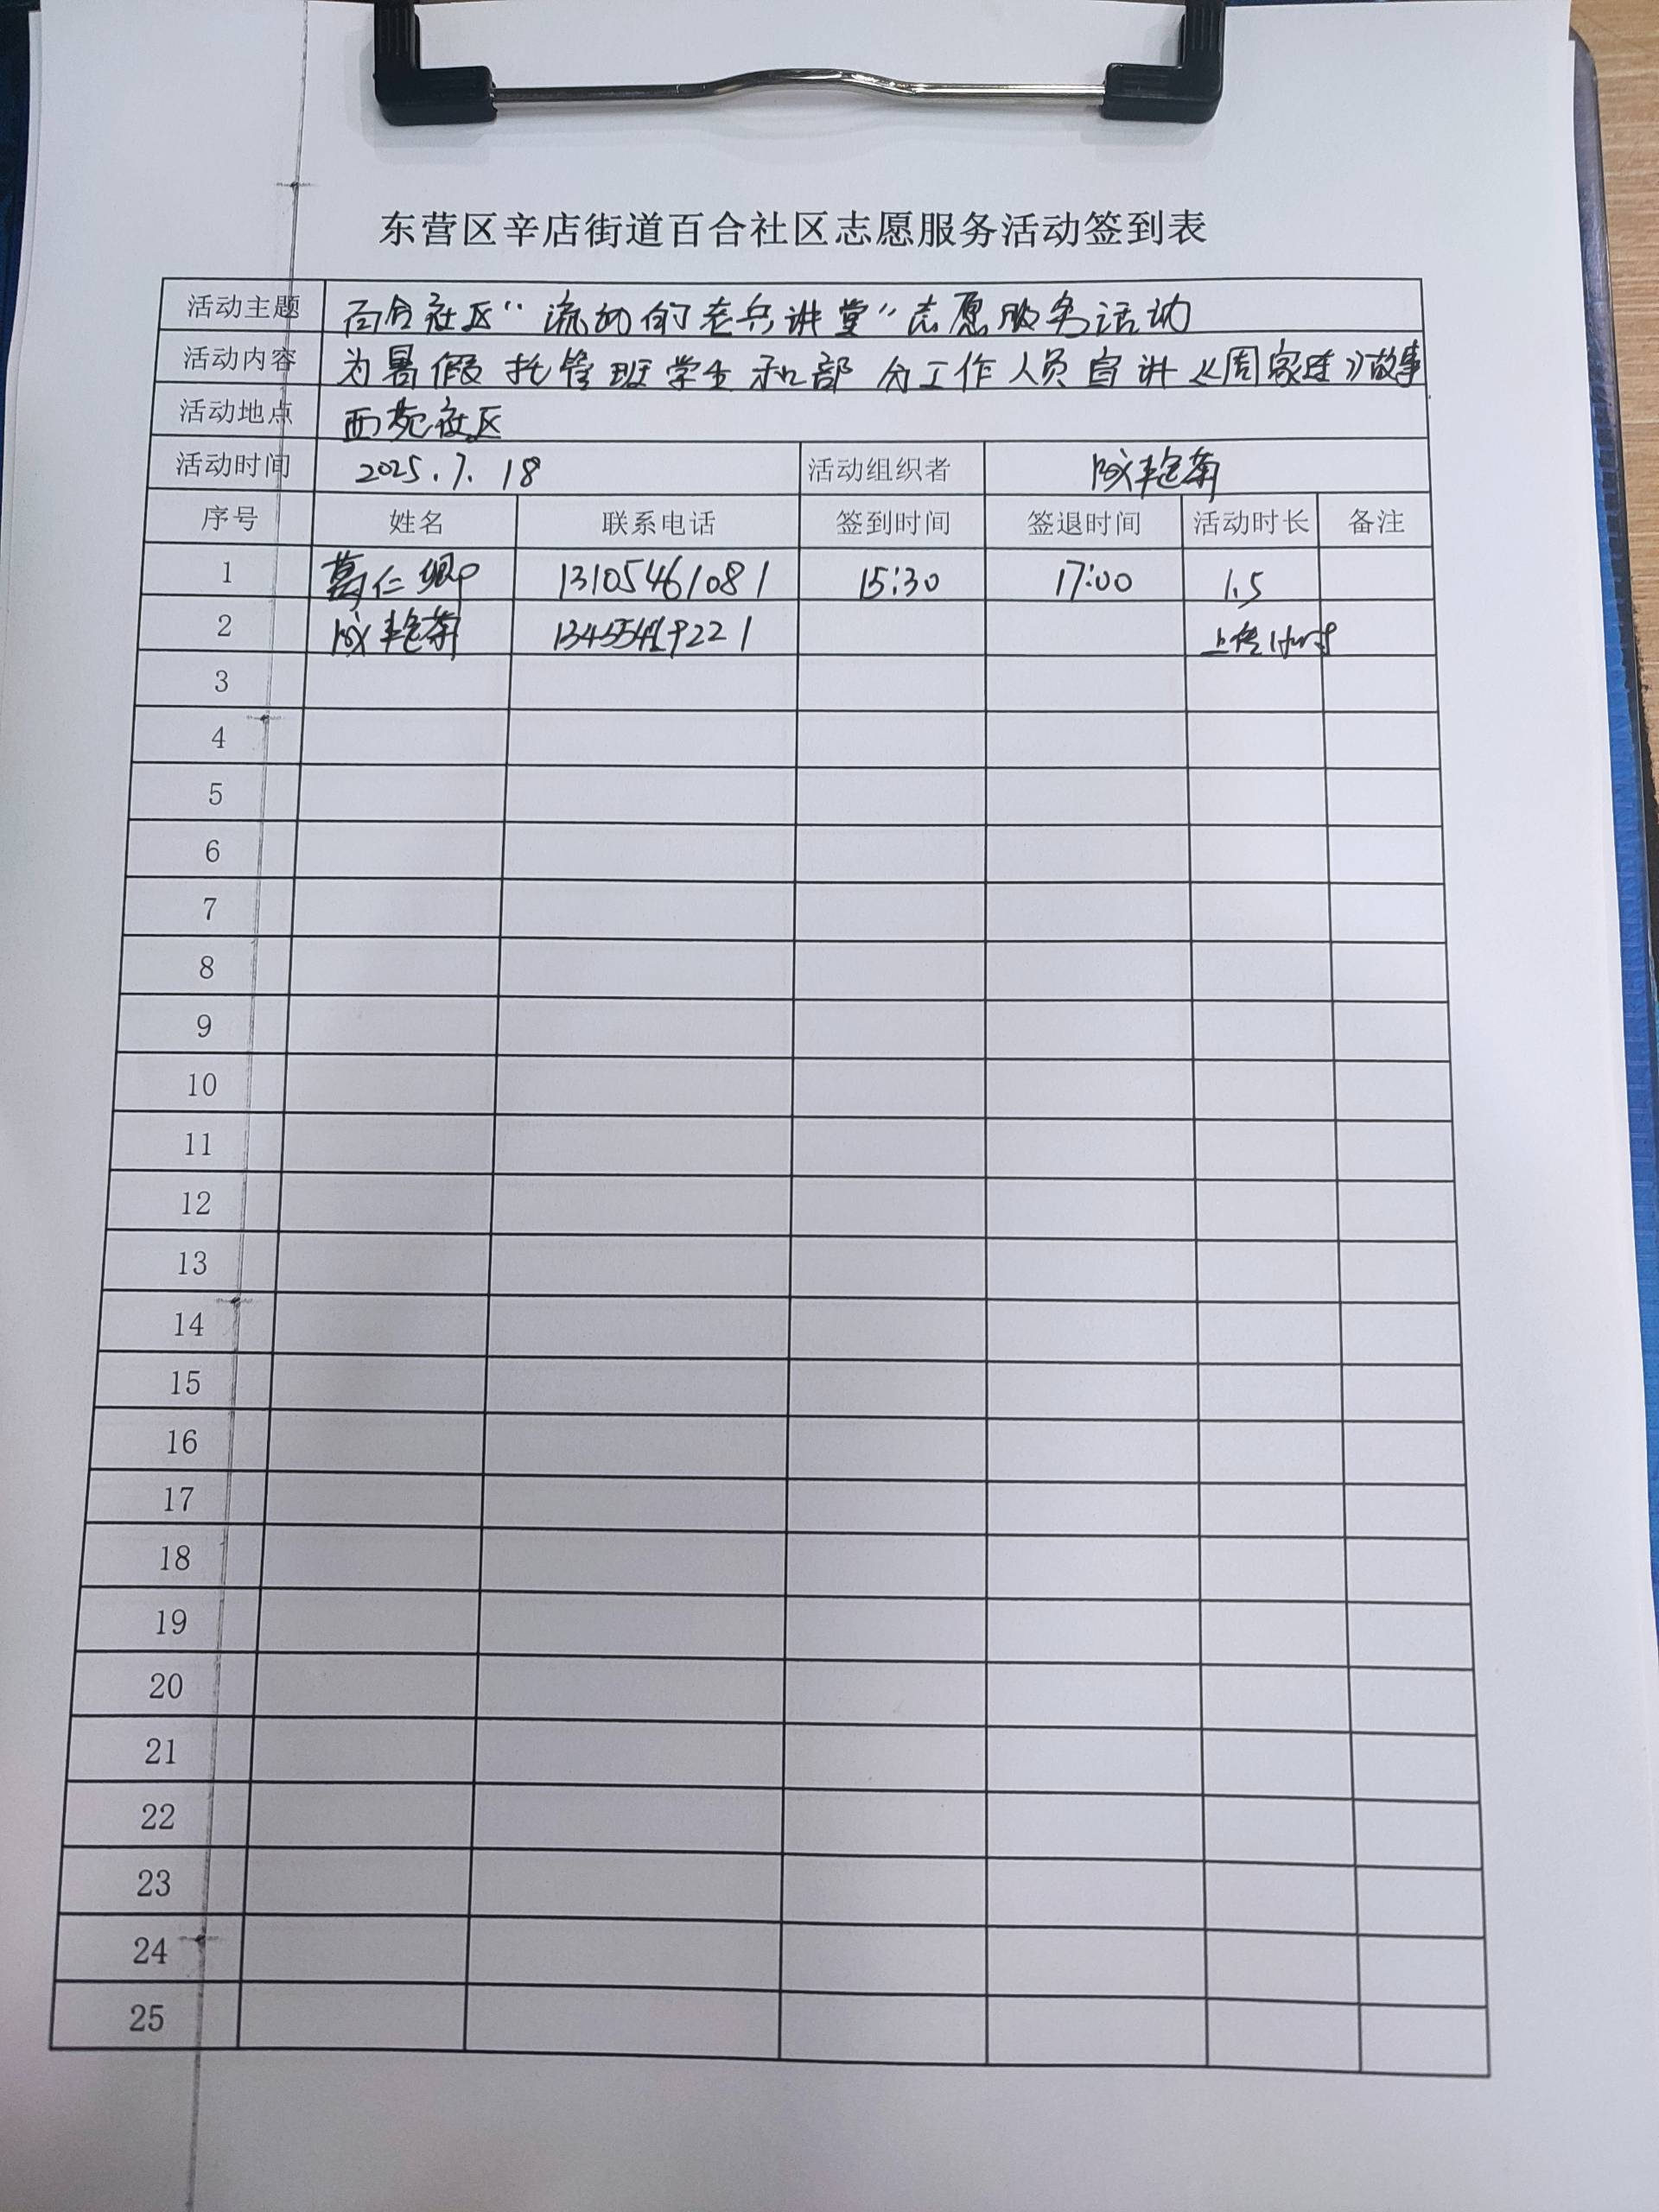 东营区辛店街道百合社区志愿服务活动签到表
活动主题 百合社区“流动的老兵讲堂”志愿服务活动
活动内容 为暑假托管班学生和部分工作人员宣讲《周家连》故事
活动地点 西苑社区
活动时间 2025.7.18 活动组织者 艳菊
序号 姓名 联系电话 签到时间 签退时间 活动时长 备注
1 葛仁卿 13105461081 15:30 17:00 1.5
2 艳菊 上传1小时
3
4
5
6
7
8
9
10
11
12
13
14
15
16
17
18
19
20
21
22
23
24
25